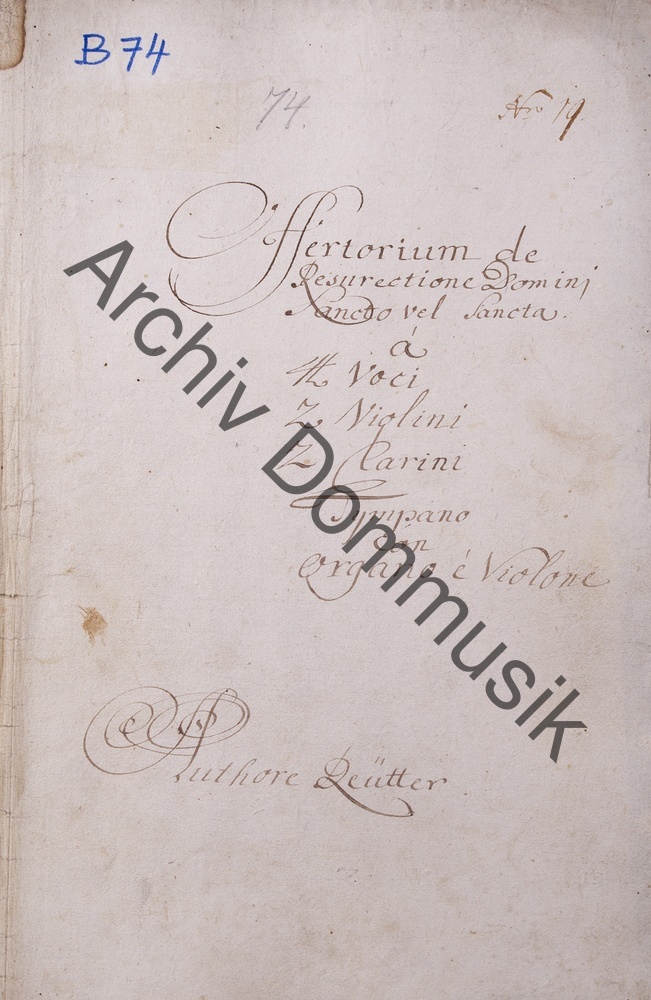 B 74
74.
Nro 19.
Offertorium de
Resurectione Domini
Sancto vel Sancta.
á
4 Voci
2 Violini
2 Clarini
Tympano
Con
Organo é Violone
Authore Reütter
Archiv Dommusik